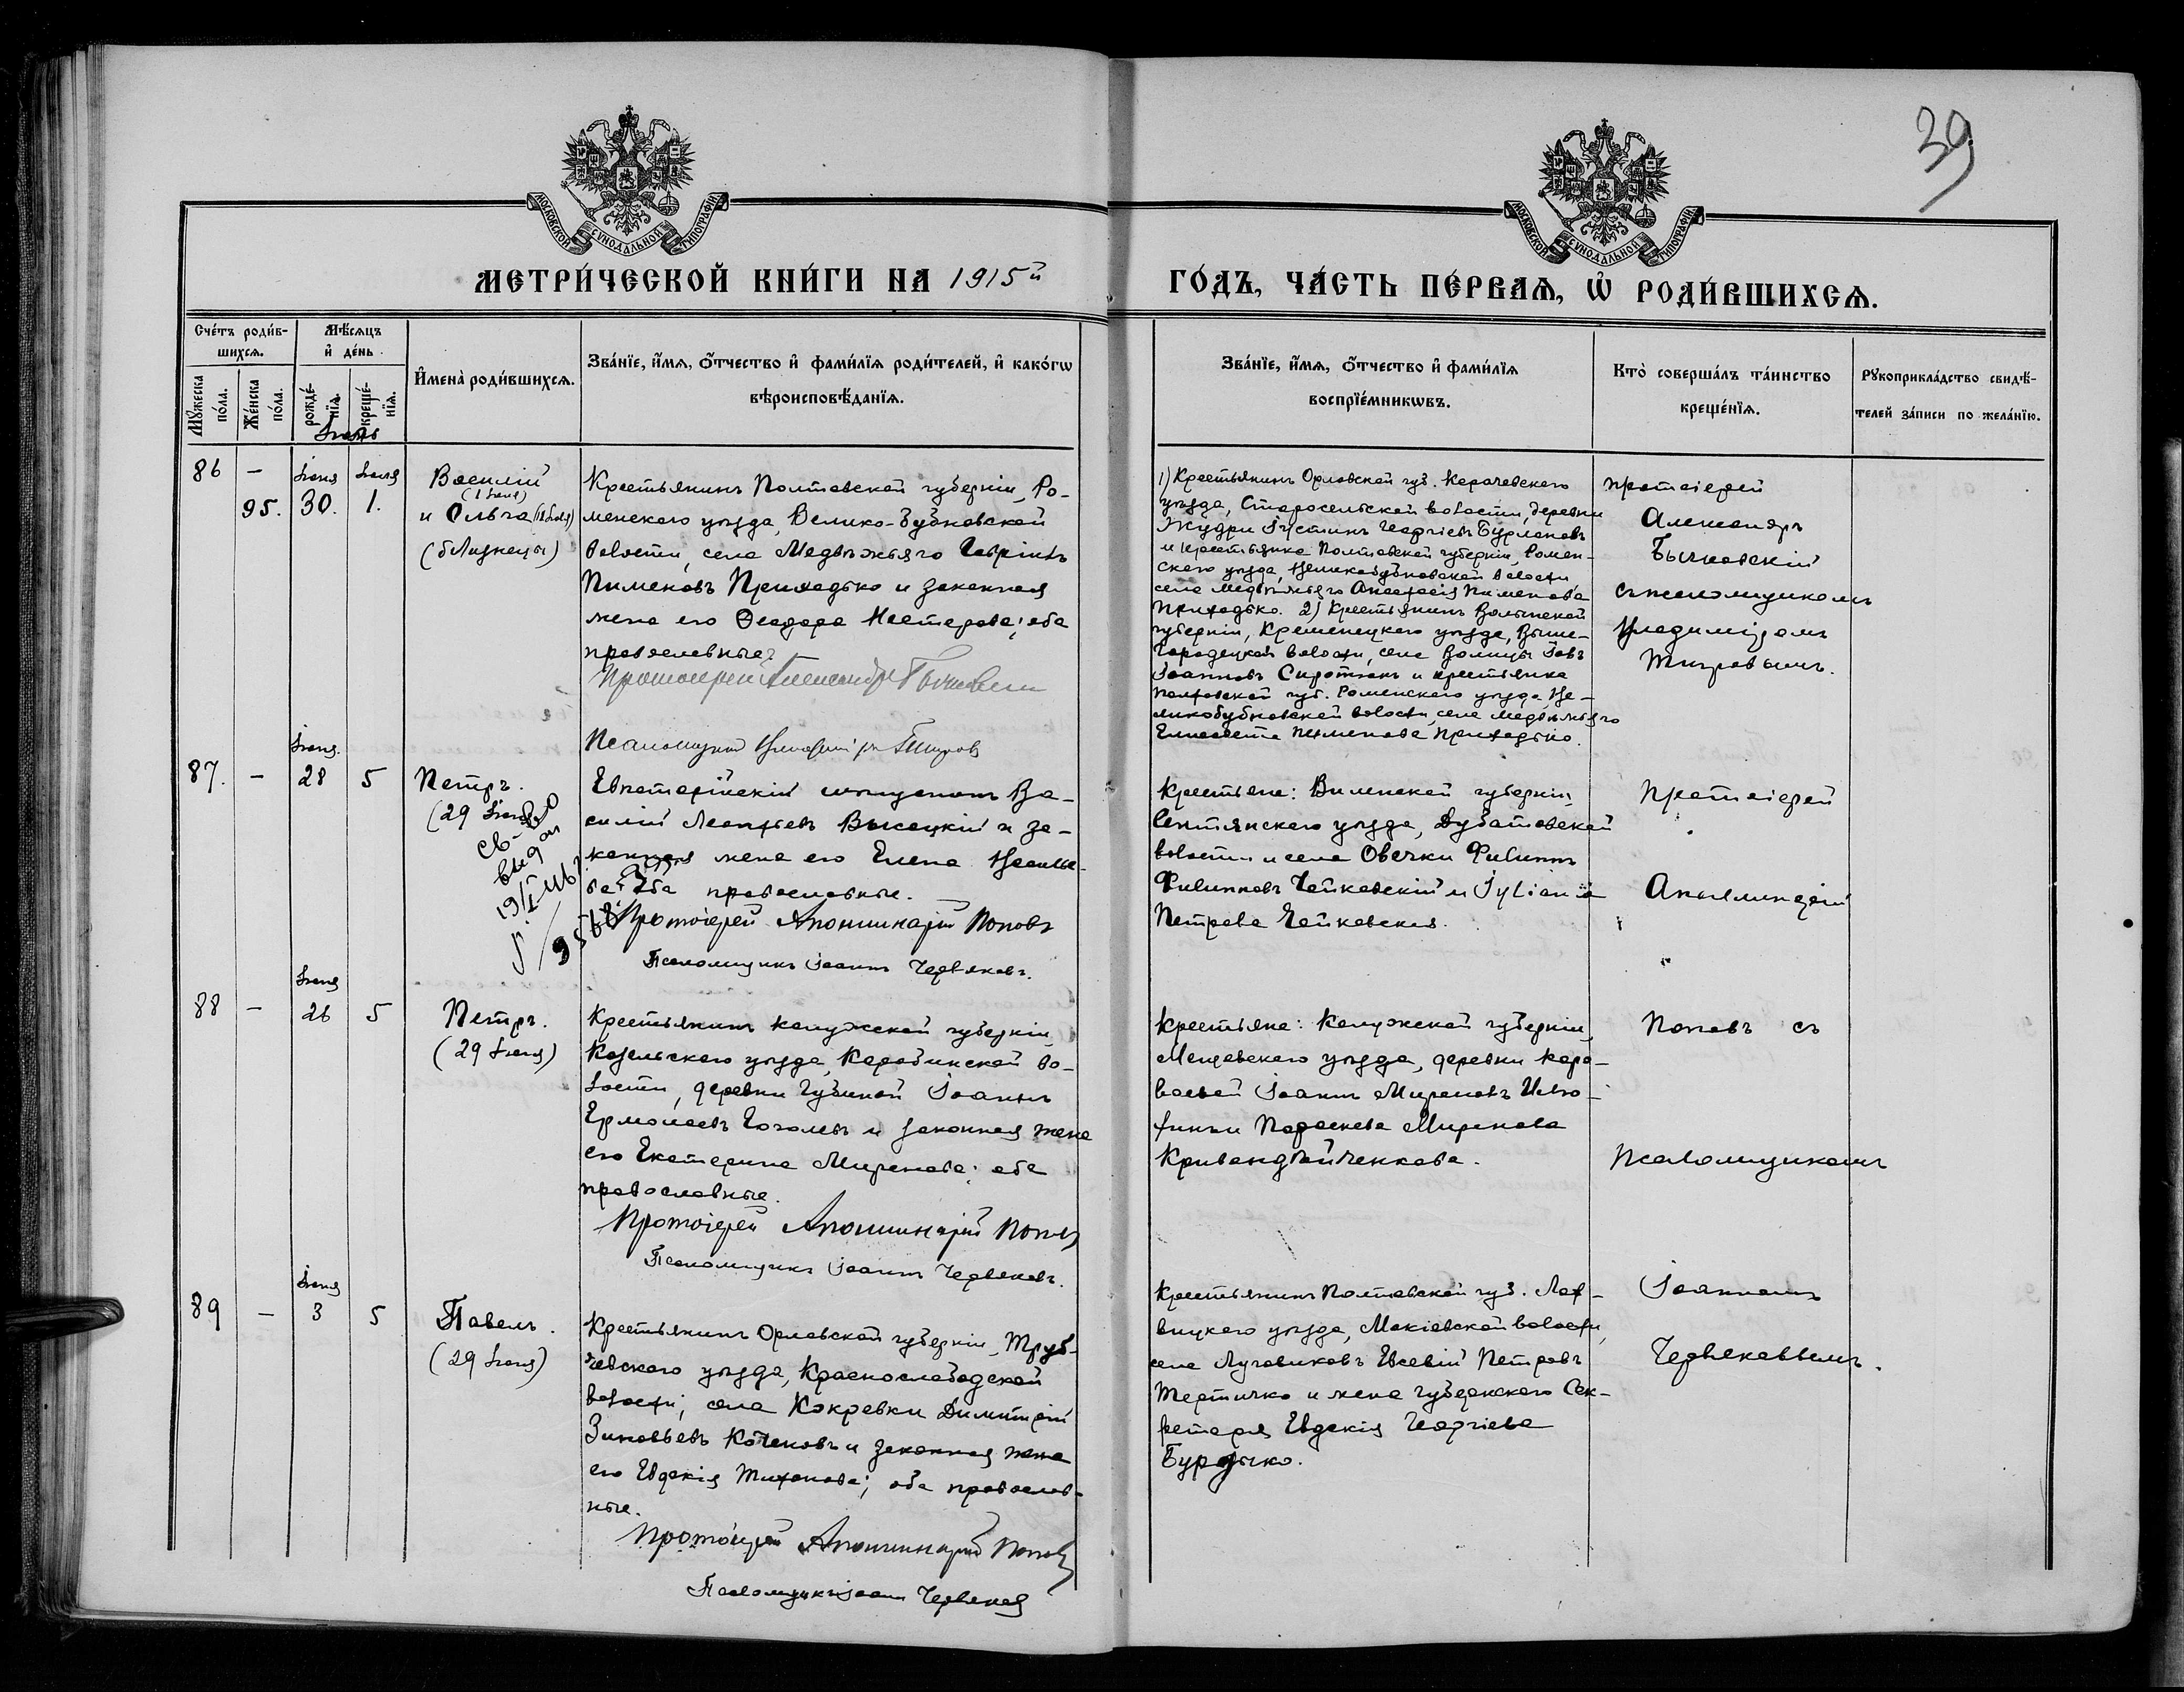 39
МОСКОВСКОЙ СУНОДАЛЬНОЙ ТИПОГРАФІИ
МОСКОВСКОЙ СУНОДАЛЬНОЙ ТИПОГРАФІИ
МЕТРИ́ЧЕСКОЙ КНИ́ГИ НА 1915й
ГО́ДЪ, ЧА́СТЬ ПЕ́РВАѦ, Ѡ҆ РОДИ́ВШИХСѦ.
Сче́тъ роди́в-
шихсѧ.
Мѣ́сѧцъ
и҆ де́нь.
Мꙋ́жеска по́ла.
Же́нска по́ла.
рожде́-
нїѧ.
креще́-
нїѧ.
И҆мена̀ роди́вшихсѧ.
Зва́нїе, и҆́мѧ, ѻ҆́тчество и҆ фами́лїѧ роди́телей, и҆ како́гѡ
вѣроисповѣ́данїѧ.
Зва́нїе, и҆́мѧ, ѻ҆́тчество и҆ фами́лїѧ
воспрїе́мникѡвъ.
Кто̀ соверша́лъ та́инство
креще́нїѧ.
Рꙋкоприкла́дство свидѣ́-
телей за́писи по жела́нїю.
86 —
95. 30. 1.
Василій
и Ольга
(близнецы)
Крестьянинъ Полтавской губерніи, Ро-
менскаго уѣзда, Велико-Бубновской
волости, села Медвѣжьяго Гавріилъ
Пименовъ Приходько и законная
жена его Ѳеодора Нестерова; оба
православные.
Протоіерей Александръ Бычковскій
Псаломщикъ Владиміръ Тигровъ
1) Крестьянинъ Орловской губ. Карачевскаго
уѣзда, Старосельской волости, деревни
Жудри Іустинъ Георгіевъ Бурлаковъ
и крестьянка Полтавской губерніи, Ромен-
скаго уѣзда, Великобубновской волости,
села Медвѣжьяго Анастасія Пименова
Приходько. 2) Крестьянинъ Волынской
губерніи, Кременецкаго уѣзда, Выше-
городецкой волости, села Волицы Іовъ
Іоанновъ Сиротюкъ и крестьянка
Полтавской губ. Роменскаго уѣзда, Ве-
ликобубновской волости, села Медвѣжьяго
Елисавета Пименова Приходько.
протоіерей
Александръ
Бычковскій
съ псаломщикомъ
Владиміромъ
Тигровымъ.
Іюня
87. — 28 5
Петръ.
(29 Іюня)
св-во
выдан
19/I 1916 г.
Евпаторійскій мѣщанинъ Ва-
силій Леонтьевъ Высоцкій и за-
конная жена его Елена
оба православные.
Протоіерей Аполлинарій Поповъ
Псаломщикъ Іоаннъ Червяковъ.
Крестьяне: Виленской губерніи,
Свентянскаго уѣзда, Дубатовской
волости и села Овечки Филиппъ
Филипповъ Чайковскій и Іуліанія
Петрова Чайковская.
Протоіерей
Аполлинарій
Іюня
88 — 26 5
Петръ.
(29 Іюня)
Крестьянинъ Калужской губерніи,
Козельскаго уѣзда, Каробинской во-
лости, деревни Губиной Іоаннъ
Ермолаевъ Гоголевъ и законная жена
его Екатерина Миронова; оба
православные.
Протоіерей Аполлинарій Поповъ
Псаломщикъ Іоаннъ Червяковъ.
Крестьяне: Калужской губерніи,
Мещовскаго уѣзда, деревни Каро-
Іоаннъ Мироновъ
Параскева Миронова
Поповъ съ
Псаломщикомъ
Іюня
89 — 3 5
Павелъ.
(29 Іюня)
Крестьянинъ Орловской губерніи, Труб-
чевскаго уѣзда, Краснослободской
волости, села Кокревки Димитрій
Зиновьевъ Коченовъ и законная жена
его Евдокія Тихонова; оба православ-
ные.
Протоіерей Аполлинарій Поповъ
Псаломщикъ Іоаннъ Червяковъ
Крестьянинъ Полтавской губ. Лох-
вицкаго уѣзда, Макіевской волости,
села Луговиковъ Евсевій Петровъ
Тертичко и жена губернскаго Сек-
ретаря Евдокія Георгіева
Бурдыко.
Іоанномъ
Червяковымъ.